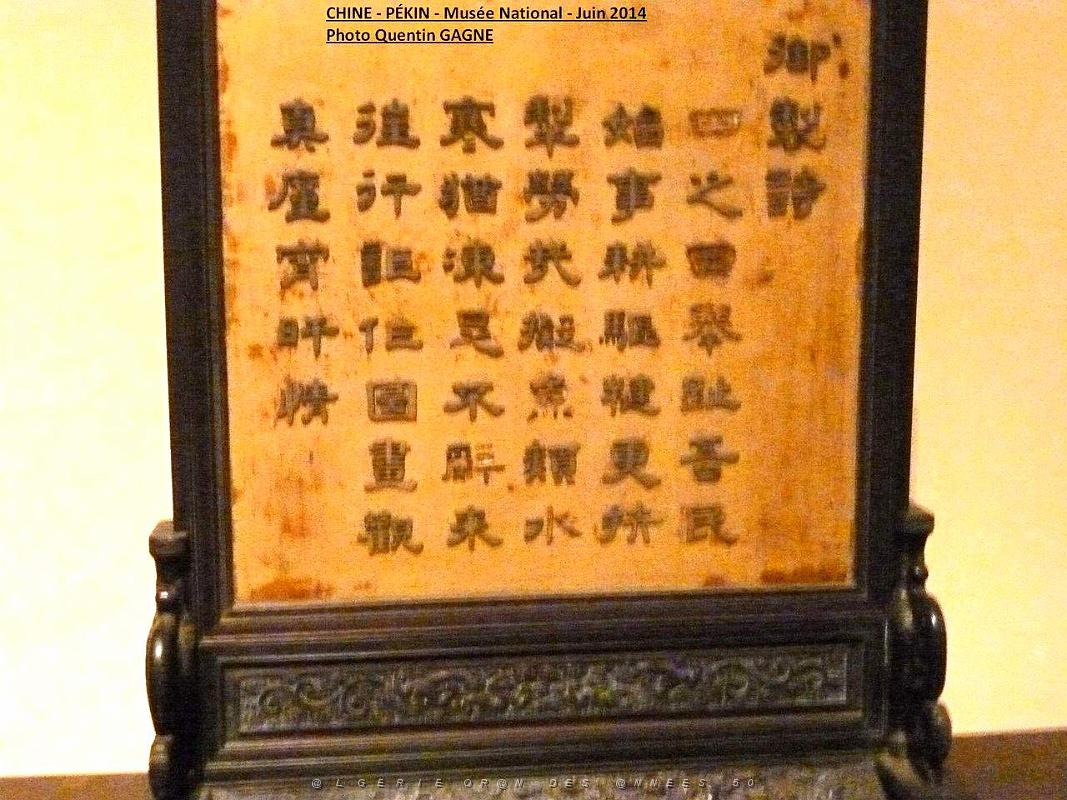 CHINE - PÉKIN - Musée National - Juin 2014
Photo Quentin GAGNE
御製詩
四之日舉趾吾民
始事耕驅犍更扶
犂勞哉擬魚頳水
寒猶凍足不辭來
往行詎但圖畫觀
真廑宵旰情
@LGERIE OR@N DES @NNEES 50